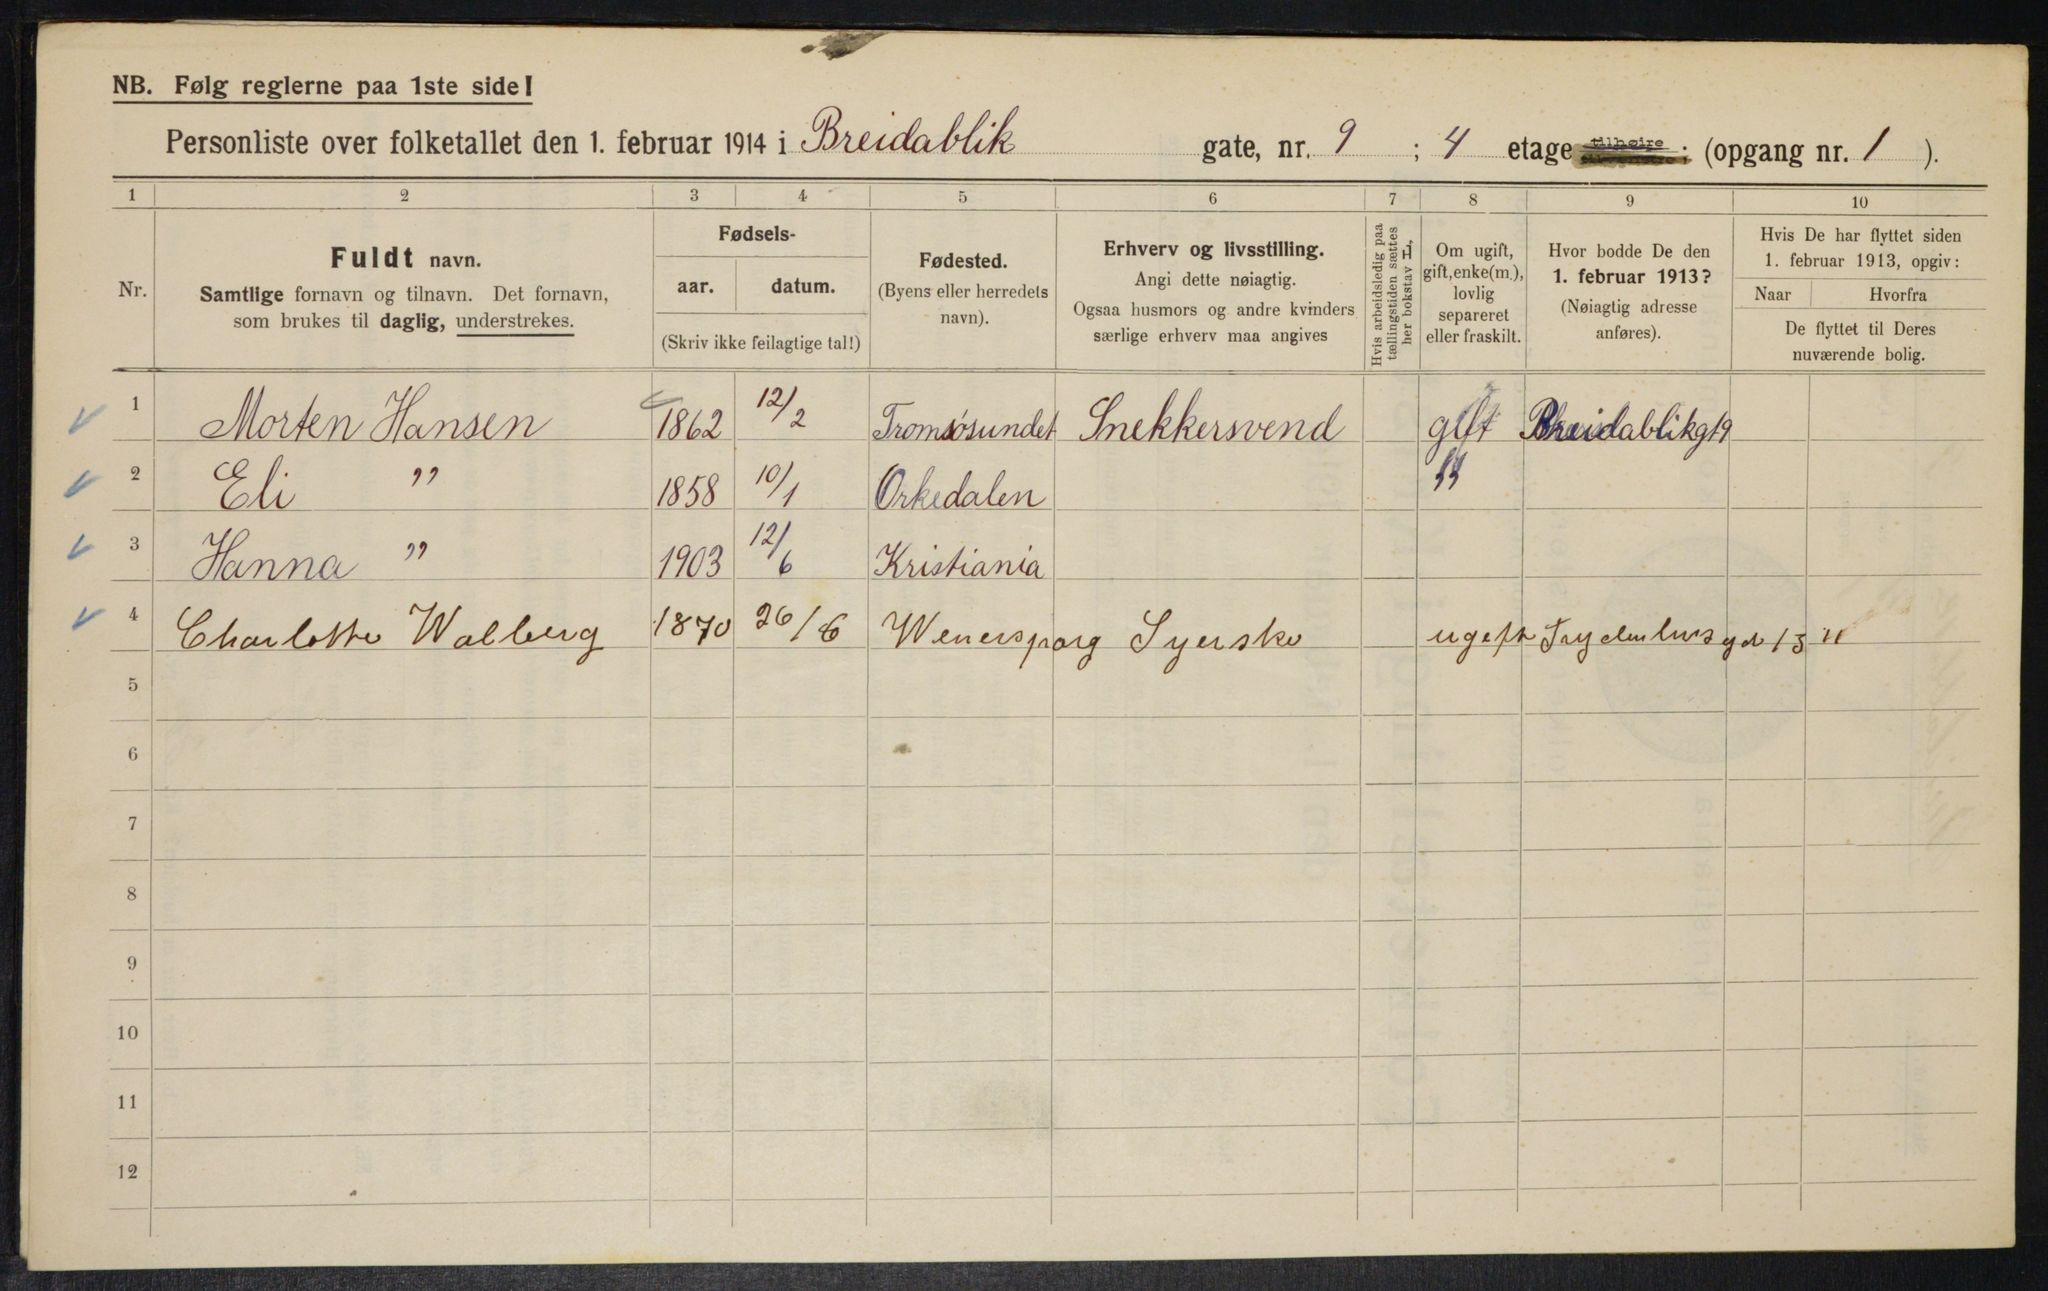 NB. Følg reglerne paa 1ste side!
Personliste over folketallet den 1. februar 1914 i Breidablik gate, nr. 9 ; 4 etage tilhøire ; (opgang nr. 1 ).
1 2 3 4 5 6 7 8 9 10
Nr.
Fuldt navn.
Samtlige fornavn og tilnavn. Det fornavn,
som brukes til daglig, understrekes.
Fødsels-
aar. datum.
(Skriv ikke feilagtige tal!)
Fødested.
(Byens eller herredets
navn).
Erhverv og livsstilling.
Angi dette nøiagtig.
Ogsaa husmors og andre kvinders
særlige erhverv maa angives
Hvis arbeidsledig paa
tællingstiden sættes
her bokstav L,
Om ugift,
gift, enke(m.),
lovlig
separeret
eller fraskilt.
Hvor bodde De den
1. februar 1913?
(Nøiagtig adresse
anføres).
Hvis De har flyttet siden
1. februar 1913, opgiv:
Naar Hvorfra
De flyttet til Deres
nuværende bolig.
1 Morten Hansen 1862 12/2 Tromsøsundet Snekkersvend gift Breidablikgt 9
2 Eli " 1858 10/1 Orkedalen "
3 Hanna " 1903 12/6 Kristiania
4 Charlotte Walberg 1870 26/6 Wenersporg Syerske ugeft 13
5
6
7
8
9
10
11
12